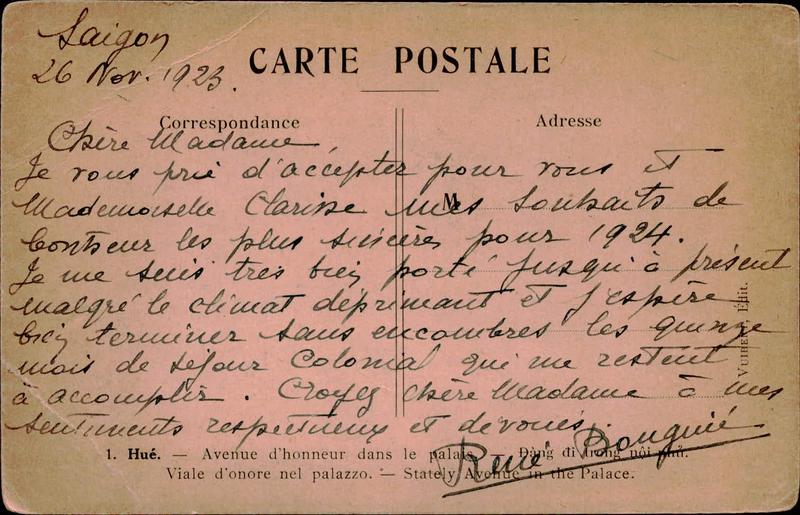 Saigon
26 Nov. 1923.
CARTE POSTALE
Correspondance
Adresse
Chère Madame
Je vous prie d'accepter pour vous et
M
Mademoiselle Clarisse mes souhaits de
bonheur les plus sincères pour 1924.
Je me suis très bien porté jusqu'à présent
malgré le climat déprimant et j'espère
bien terminer sans encombres les quinze
mois de séjour Colonial qui me restent
à accomplir. Croyez chère Madame à mes
sentiments respectueux et dévoués.
René
1. Hué. — Avenue d'honneur dans le palais. — Đàng đi trong nội phủ.
Viale d'onore nel palazzo. — Stately Avenue in the Palace.
Édit.